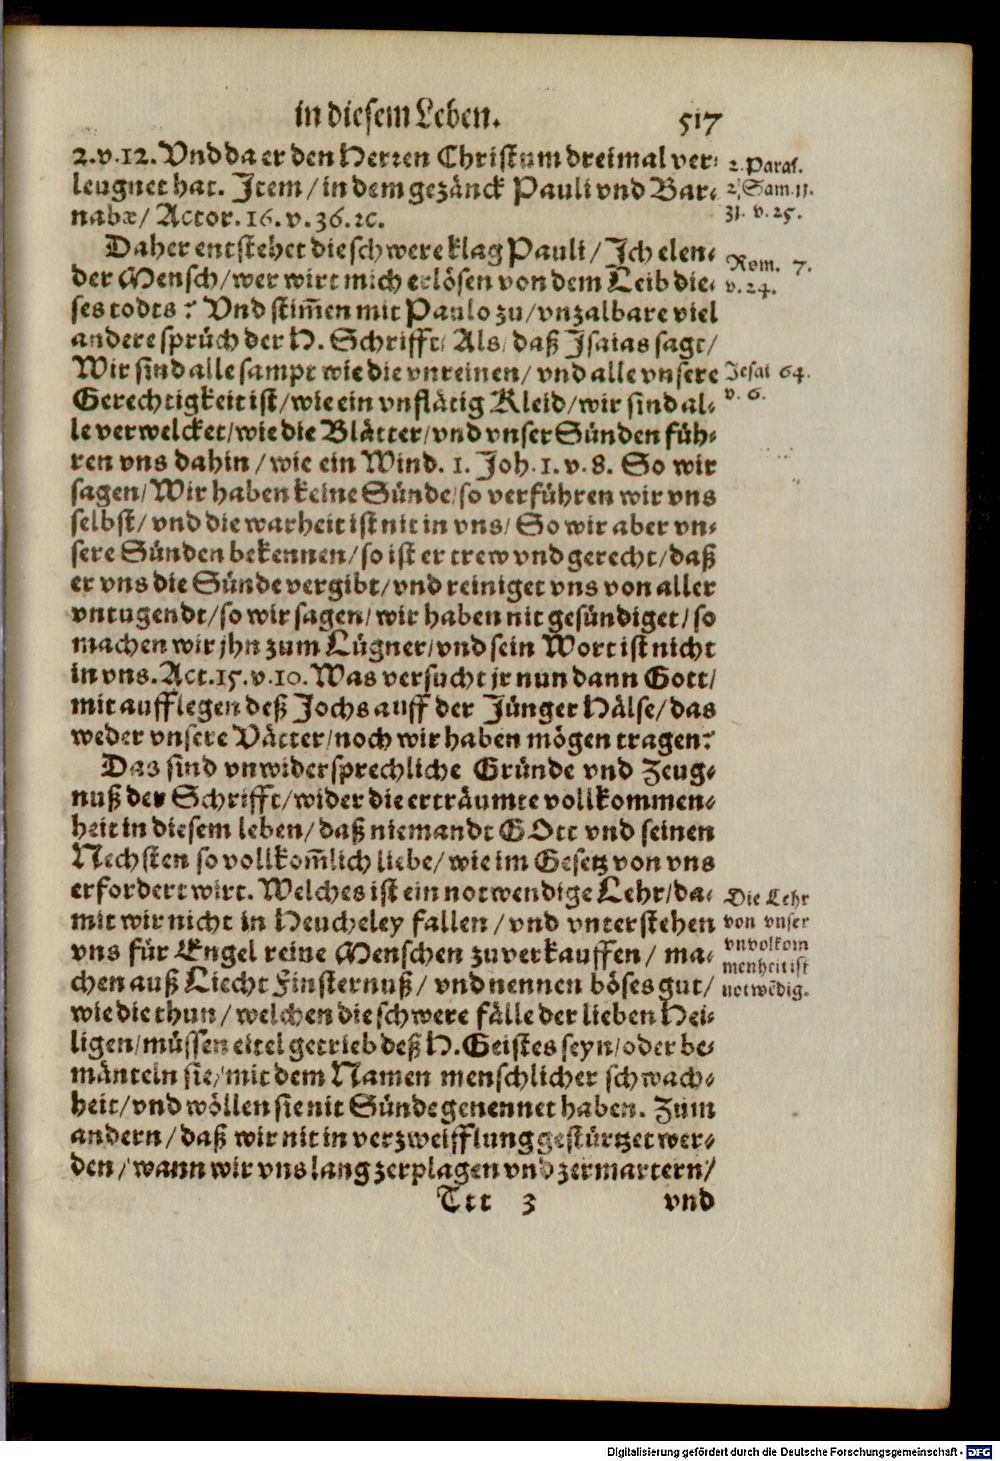 in diesem Leben. 517
2. v. 12. Vnd da er den Herren Christum dreimal ver-
leugnet hat. Jtem/ in dem gezänck Pauli vnd Bar-
nabæ/ Actor. 16. v. 36. ꝛc.
2. Paral.
2. Sam. 11.
31. v. 25.
Daher entstehet die schwere klag Pauli/ Jch elen-
der Mensch/ wer wirt mich erlösen von dem Leib die-
ses todts? Vnd stim̃en mit Paulo zu/ vnzalbare viel
andere sprüch der H. Schrifft/ Als/ daß Jsaias sagt/
Wir sind alle sampt wie die vnreinen/ vnd alle vnsere
Gerechtigkeit ist/ wie ein vnflätig Kleid/ wir sind al-
le verwelcket/ wie die Blätter/ vnd vnser Sünden füh-
ren vns dahin/ wie ein Wind. 1. Joh. 1. v. 8. So wir
sagen/ Wir haben keine Sünde/ so verführen wir vns
selbst/ vnd die warheit ist nit in vns/ So wir aber vn-
sere Sünden bekennen/ so ist er trew vnd gerecht/ daß
er vns die Sünde vergibt/ vnd reiniget vns von aller
vntugendt/ so wir sagen/ wir haben nit gesündiget/ so
machen wir jhn zum Lügner/ vnd sein Wort ist nicht
in vns. Act. 15. v. 10. Was versucht jr nun dann Gott/
mit aufflegen deß Jochs auff der Jünger Hälse/ das
weder vnsere Vätter/ noch wir haben mögen tragen?
Rom. 7.
v. 24.
Jesai 64.
v. 6.
Das sind vnwidersprechliche Gründe vnd Zeug-
nuß der Schrifft/ wider die erträumte vollkommen-
heit in diesem leben/ daß niemandt GOtt vnd seinen
Nechsten so vollkom̃lich liebe/ wie im Gesetz von vns
erfordert wirt. Welches ist ein notwendige Lehr/ da-
mit wir nicht in Heucheley fallen/ vnd vnterstehen
vns für Engel reine Menschen zuverkauffen/ ma-
chen auß Liecht Finsternuß/ vnd nennen böses gut/
wie die thun/ welchen die schwere fälle der lieben Hei-
ligen/ müssen eitel getrieb deß H. Geistes seyn/ oder be-
mänteln sie/ mit dem Namen menschlicher schwach-
heit/ vnd wöllen sie nit Sünde genennet haben. Zum
andern/ daß wir nit in verzweifflung gestürtzet wer-
den/ wann wir vns lang zerplagen vnd zermartern/
Die Lehr
von vnser
vnvolkom
menheit ist
notwẽdig.
Ttt 3 vnd
Digitalisierung gefördert durch die Deutsche Forschungsgemeinschaft - DFG